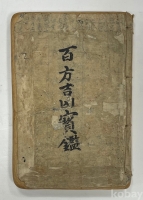 百方吉凶寶鑑